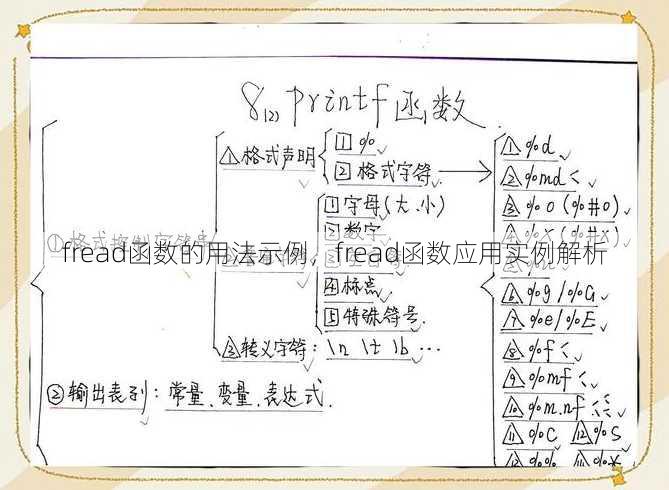 8.(2) printf函数
△1 格式声明
1 %
2 格式字符
①格式控制字符串
1 字母(大、小)
2 数字
fread函数的用法示例，fread函数应用实例解析
4 标点
5 特殊符号
△3 转义字符: \n \t \b …
②输出表列: 常量、变量、表达式.
△1 %d
△2 %md <
△3 %o (%#o)
△4 %x (%#x)
△6 %g / %G
△7 %e / %E
△8 %f <
△9 %mf <
△10 %m.nf
△11 %c △12 %s
%% %*